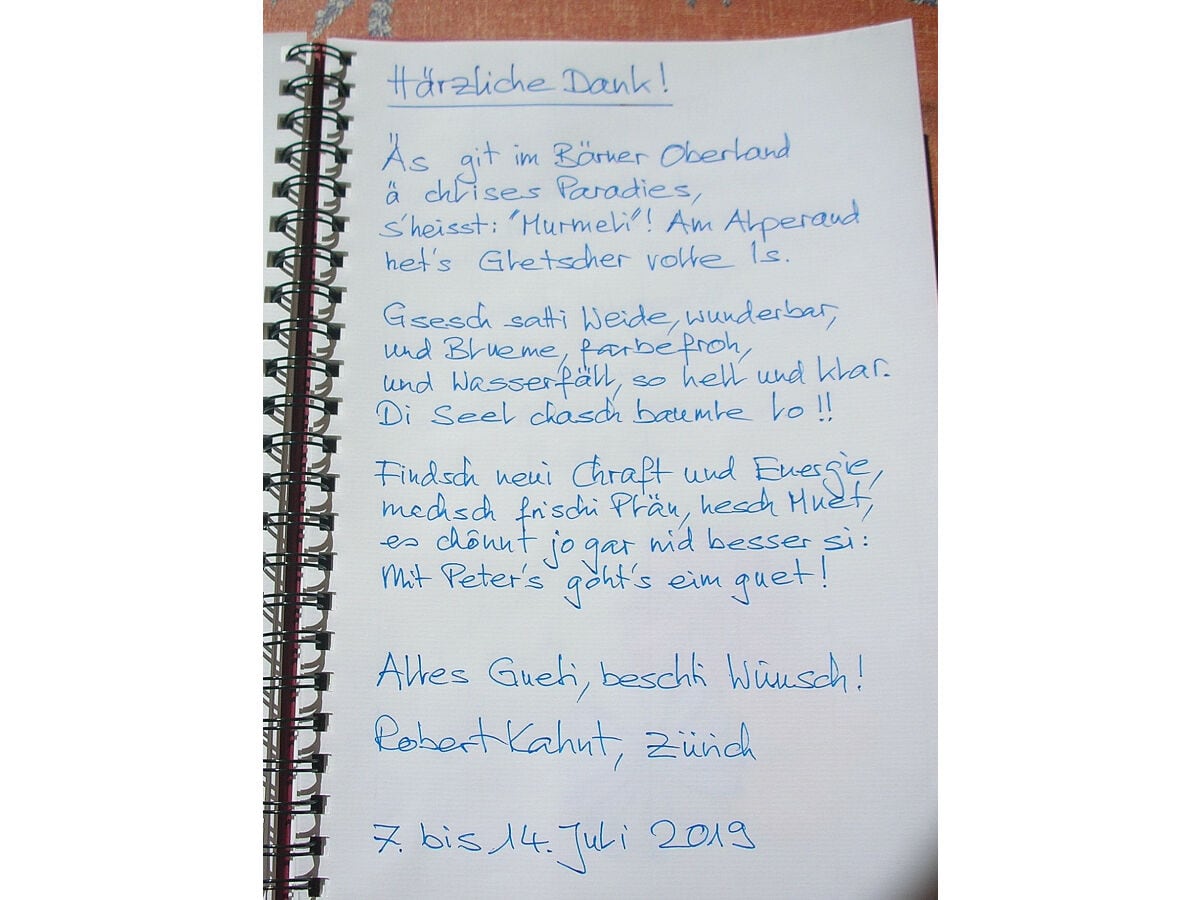 Härzliche Dank!
Äs git im Bärner Oberland
ä chlises Paradies,
s'heisst: "Murmeli"! Am Alperand
het's Gletscher volle Is.
Gsesch satti Weide, wunderbar,
und Blueme, farbefroh,
und Wasserfäll, so hell und klar.
Di Seel chasch baumle lo!!
Findsch neui Chraft und Energie,
machsch frischi Plän, hesch Muet,
es chönnt jo gar nid besser si:
Mit Peter's goht's eim guet!
Alles Gueti, beschti Wünsch!
Robert Kahnt, Zürich
7. bis 14. Juli 2019